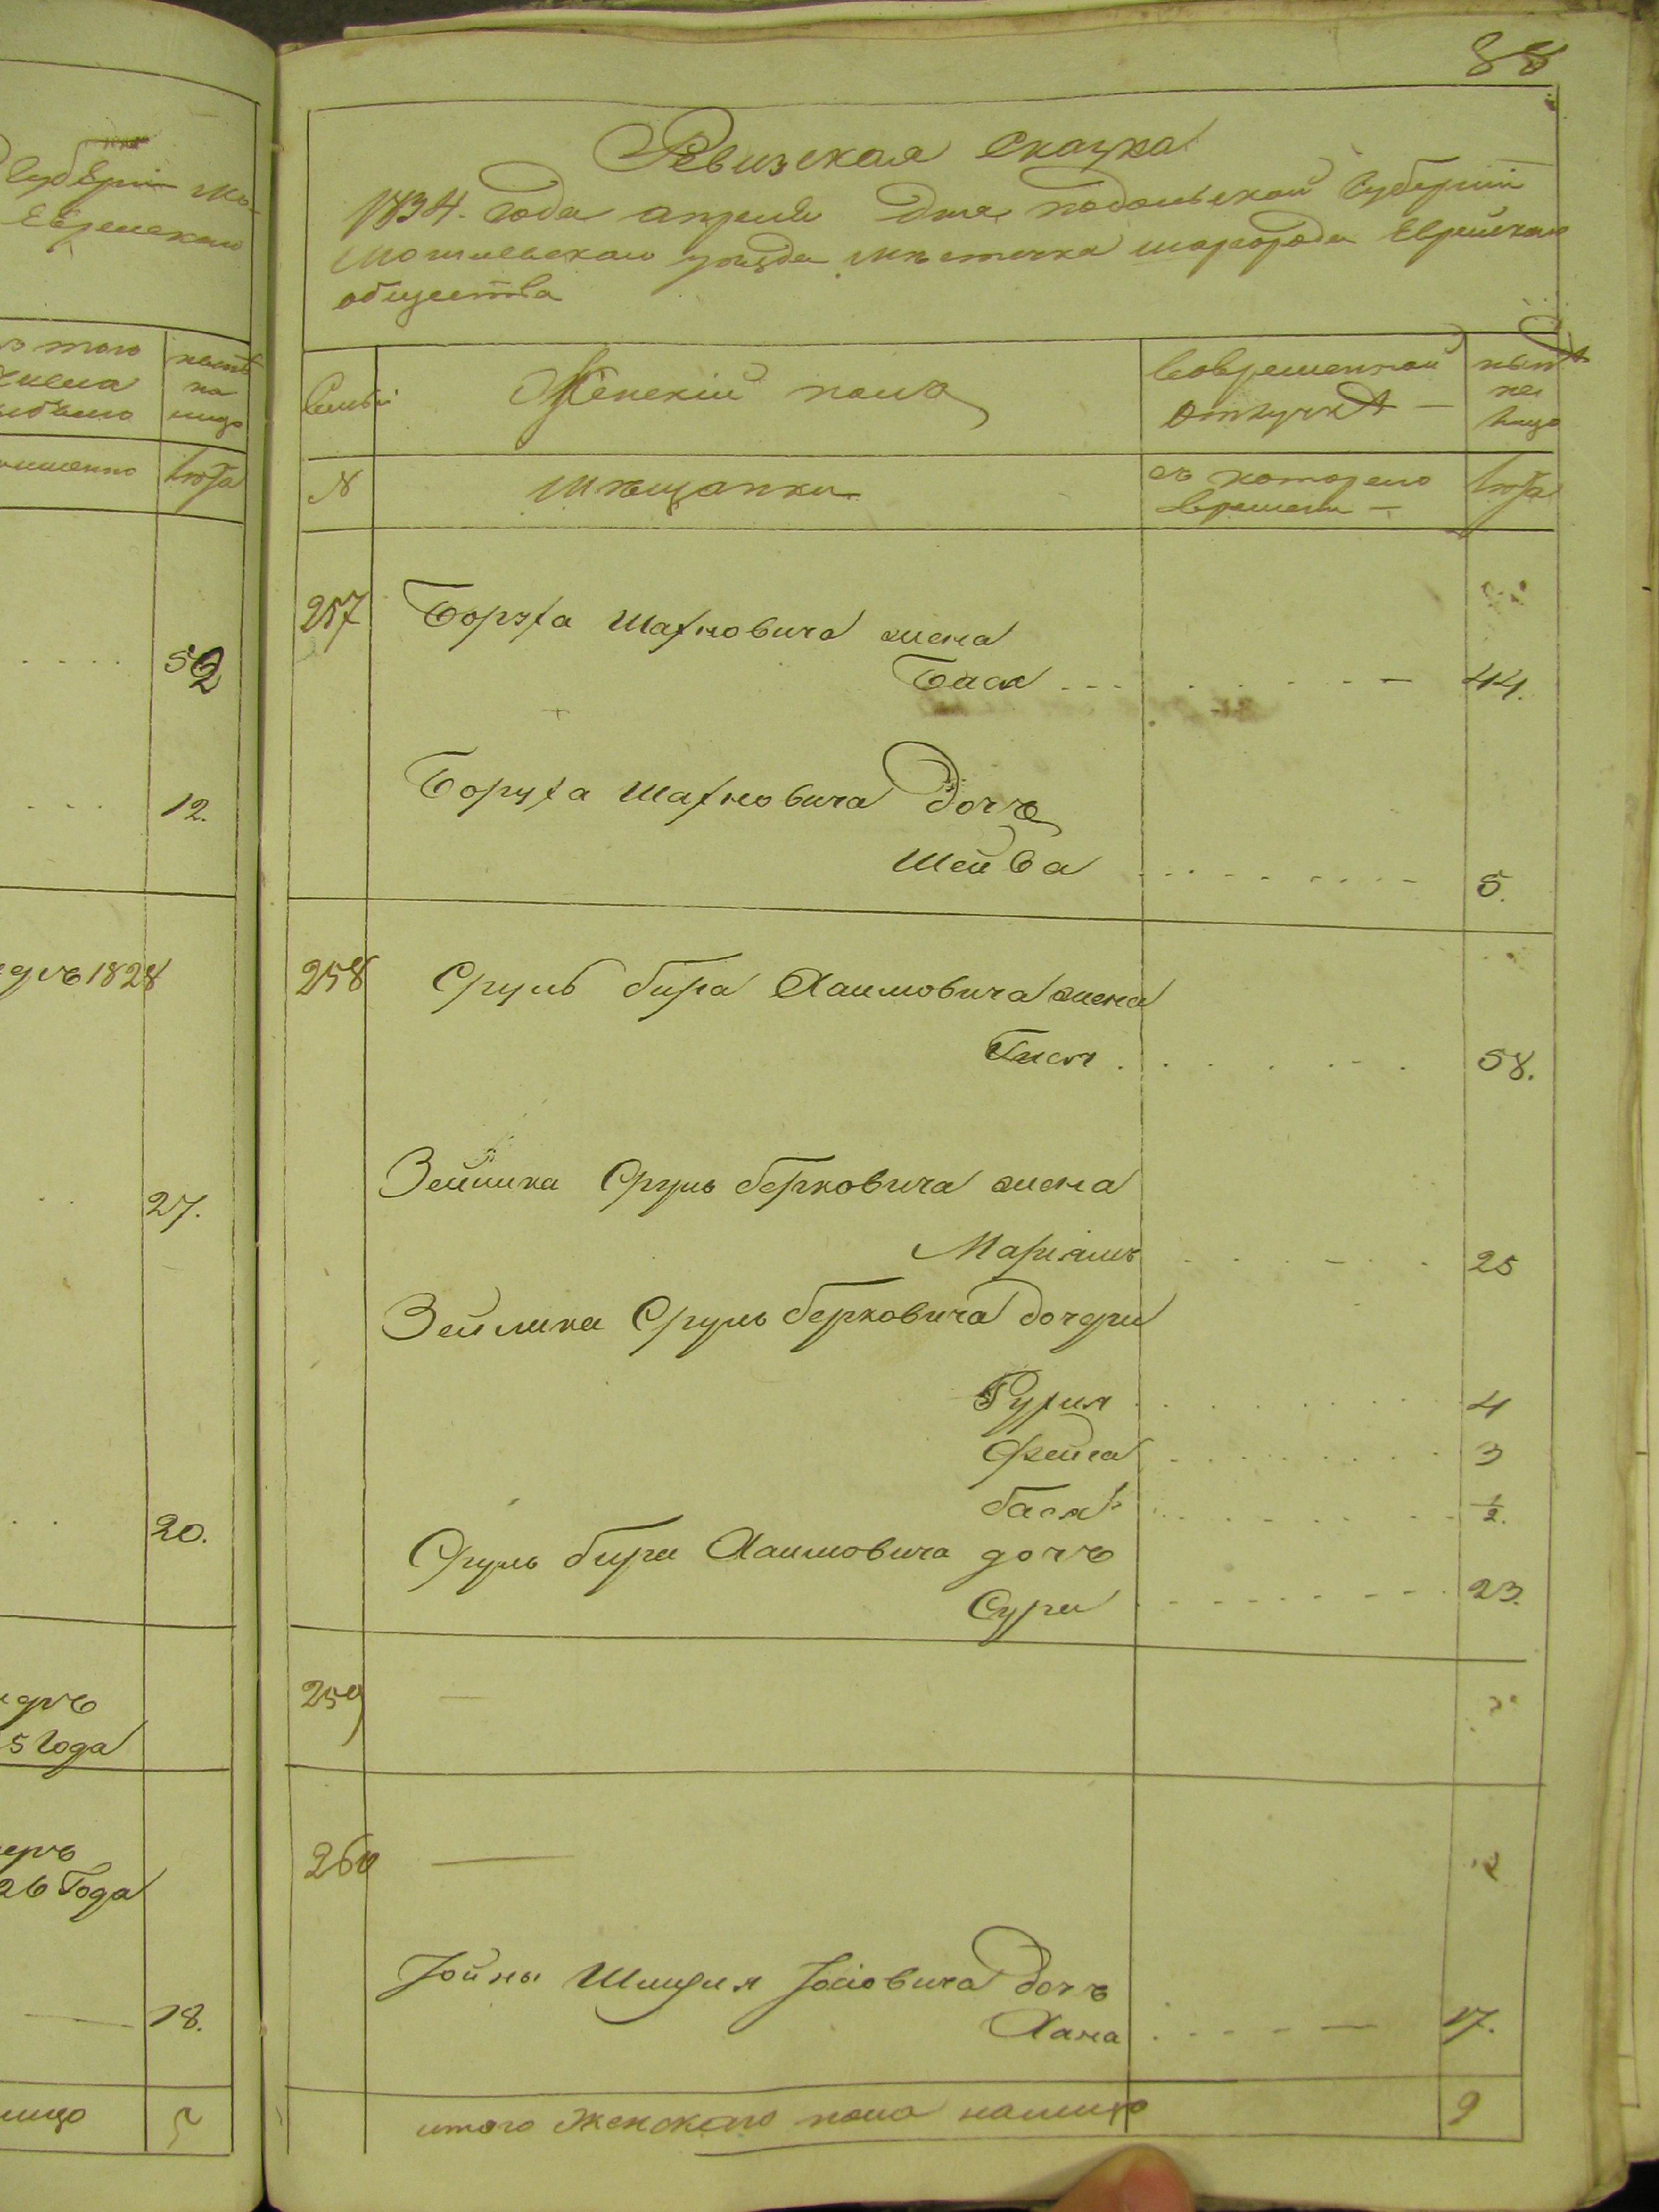 88
Ревизская Сказка
1834. года апреля дня подольской Губернии
Могилевского уезда местечка шаргорода Еврейского
общества
Семьи
Женский полъ
Вовременной
отлучке
ныне
на
лицо
N
Мещанки
съ котораго
времени
Лета
257
Боруха Шахновича жена
Бася
44.
Боруха Шахновича дочь
Шейва
5.
258
Сруль бира Хаимовича жена
Гися
58.
Зейлика Сруль берковича жена
Маріямъ
25
Зейлика Сруль берковича дочери
Рухля
4
Фейга
3
бася
1/2.
Сруль бира Хаимовича дочь
Сура
23.
259
260
Іойны Іосіовича дочь
Хана
17.
итого женского пола налицо
9
Губерніи Мо-
Еврейского
из того
числа
ныне
на
лицо
Лета
52
12.
1828
27.
20.
5 года
26 Года
18.
лицо
5